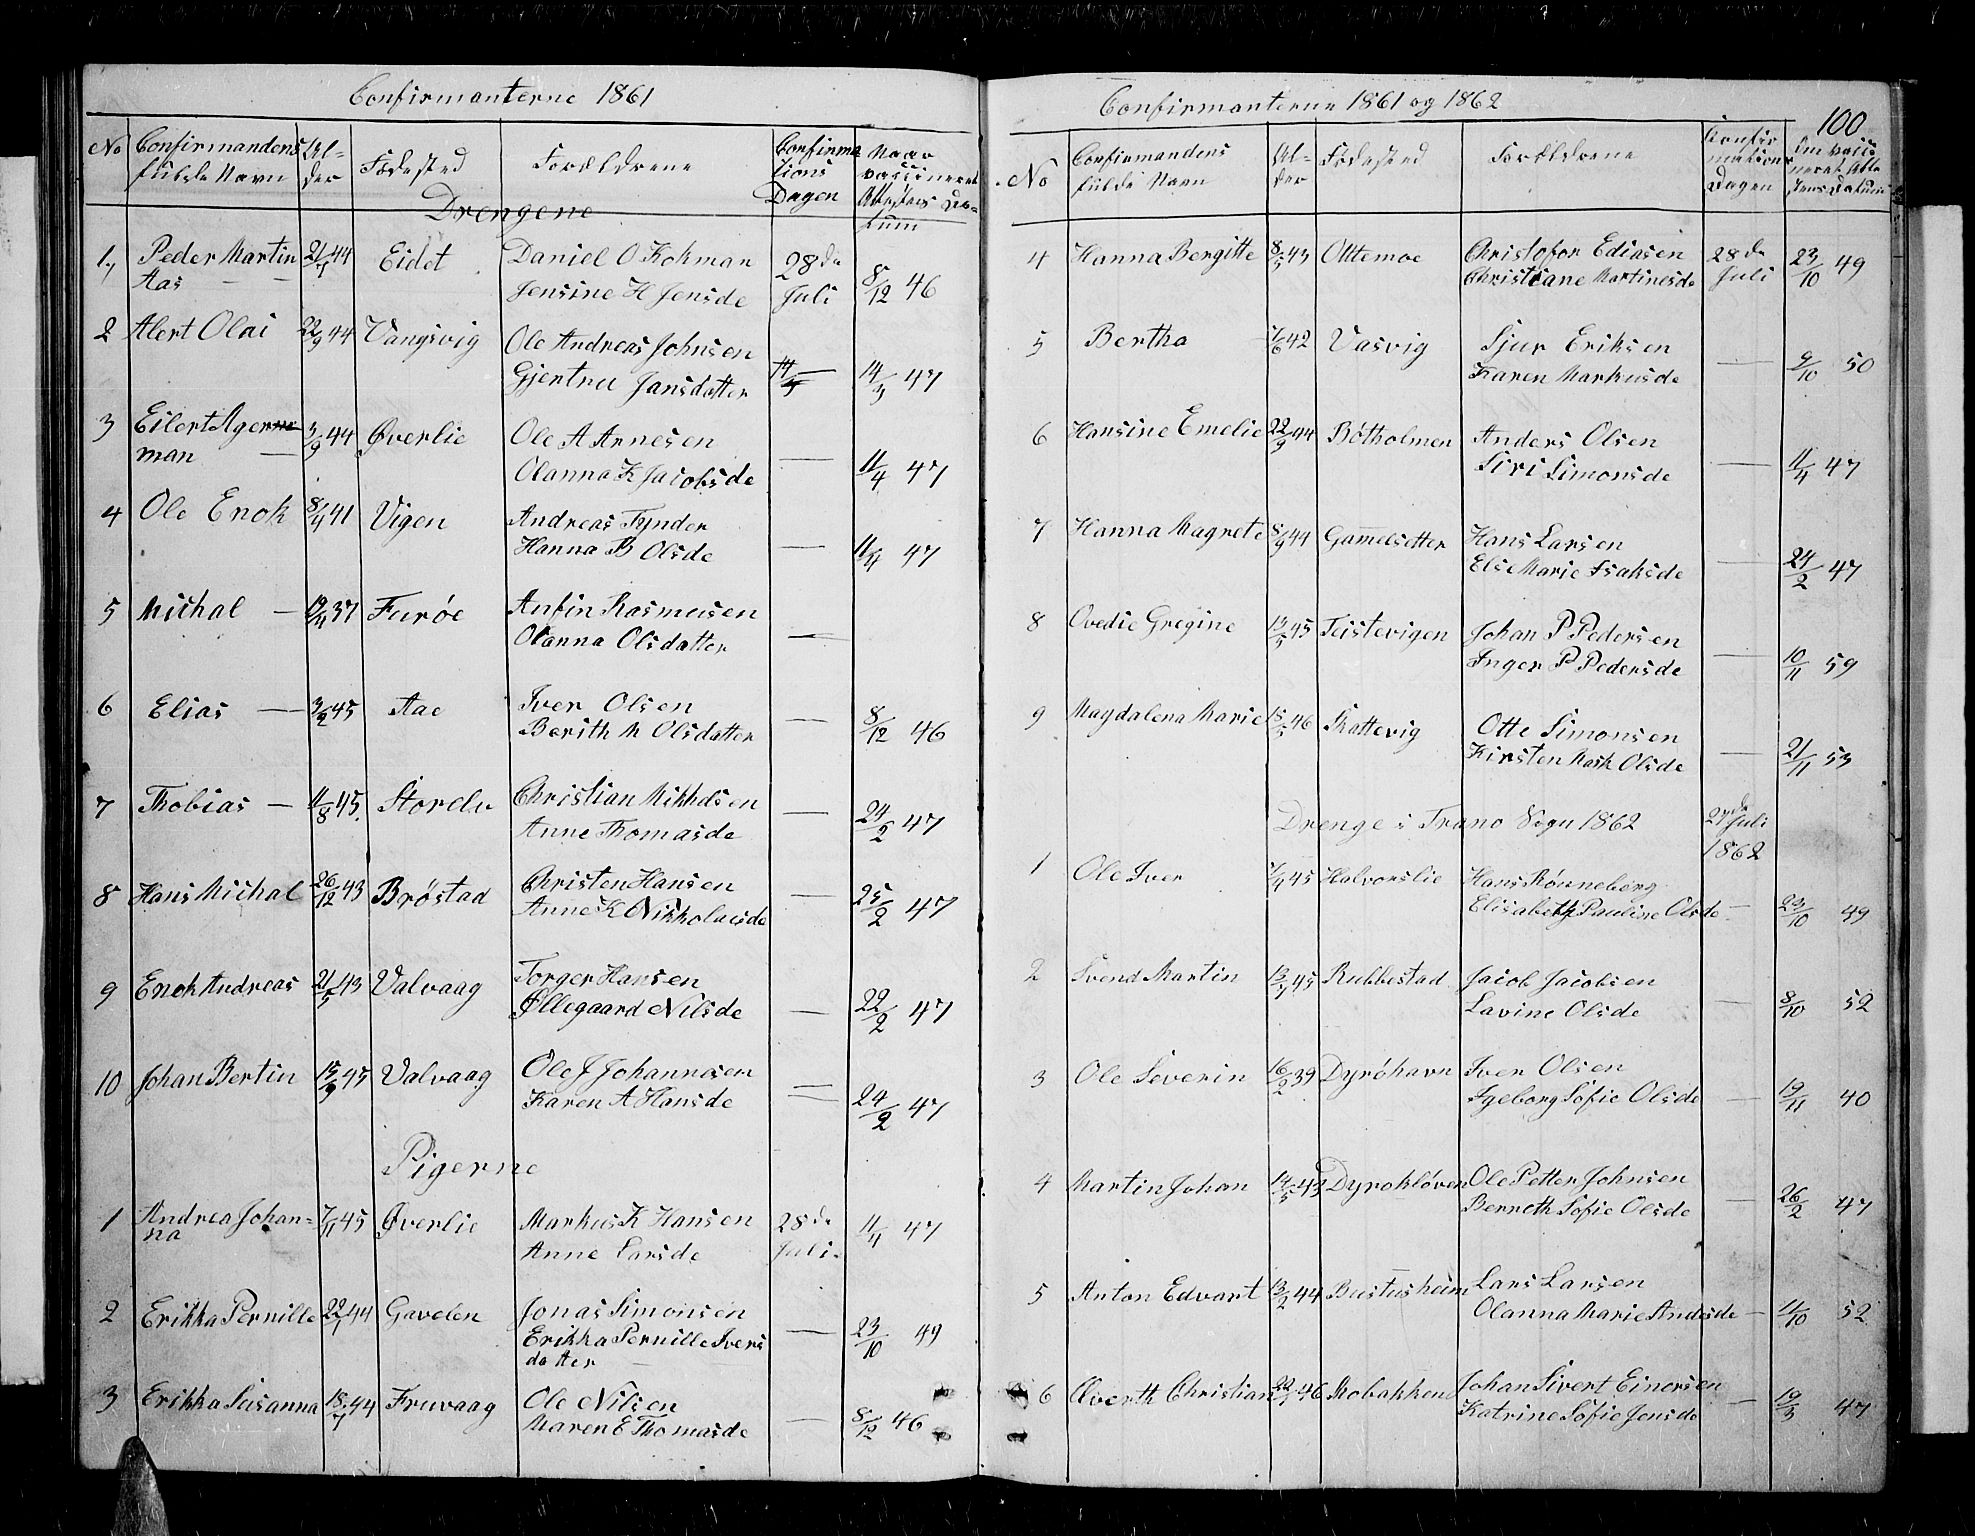 Confirmanterne 1861
No Confirmandens fulde Navn Al-der Fødested Forældrene Confirmations Dagen Naar vaccineret Attestens Datum
Drengene
1, Peder Martin Aas 21/7 44 Eidet Daniel O Kokman 28de Juli 8/12 46
Jensine H Jensde
2 Alert Olai 22/9 44 Vangsvig Ole Andreas Johnsen 14/3 47
Gjertru Jansdatter
3 Eilert Agerman 3/9 44 Øverlie Ole A Arnesen — 11/4 47
Olanna K Jacobsde
4 Ole Enok 8/4 41 Vigen Andreas Tynder — 11/4 47
Hanna B Olsde
5 Michal — 37 Furøe Anfin Rasmusen —
Olanna Olsdatter
6 Elias — 3/2 45 Aae Iver Olsen — 8/12 46
Berith M Olsdatter
7 Thobias — 11/8 45 Storelv Christian Mikkelsen — 24/2 47
Anne Thomasde
8 Hans Michal 26/12 43 Brøstad Christen Hansen — 25/2 47
Anne K Nikkolaisde
9 Enok Andreas 21/5 43 Valvaag Torger Hansen — 22/2 47
Øllegaard Nilsde
10 Johan Bertin 15/9 45 Valvaag Ole J Johannesen — 24/2 47
Karen A Hansde
Pigerne
1 Andrea Johan=na 7/11 45 Øverlie Markus K Hansen 28de Juli 11/4 47
Anne Larsde
2 Erikka Pernille 22/7 44 Gavelen Jonas Simonsen — 23/10 49
Erikka Pernille Ivers
datter
3 Erikka Susanna 18/7 44 Fruvaag Ole Nilsen — 8/12 46
Maren E Thomasde
Confirmanterne 1861 og 1862
100
No Confirmandens fulde Navn Al-der Fødested Forældrene Konfirmations Dagen Om vacci neret Atte stens Datum
4 Hanna Bergitte 8/5 43 Ottemoe Christofor Ediasen 28de Juli 23/10 49
Christiane Martinesde
5 Bertha 7/6 42 Vasvig Sjur Eriksen — 9/10 50
Karen Markusde
6 Hansine Emelie 22/9 44 Bøtholmen Anders Olsen — 11/4 47
Siri Simonsde
7 Hanna Magrete 8/9 44 Gamelsetter Hans Larsen — 24/2 47
Else Marie Isaksde
8 Ovedie Gregine 13/5 45 Teistevigen Johan P Pedersen — 10/11 59
Inger P Pedersde
9 Magdalena Marie 15/5 46 Skattevig Otte Simonsen — 21/11 53
Kirsten Mark Olsde
Drenge i Trano Sogn 1862 27de Juli 1862
1 Ole Iver 7/4 45 Halvorslie Hans Rønneberg — 23/10 49
Elisabeth Pauline Olsde
2 Svend Martin 13/7 45 Rubbestad Jacob Jacobsen — 8/10 52
Lavine Olsde
3 Ole Severin 16/2 39 Dyrøhavn Iver Olsen — 19/11 40
Igeborg Sofie Olsde
4 Martin Johan 14/5 43 Dyrøkløven Ole Petter Johnsen — 26/2 47
Berreth Sofie Olsde
5 Anton Edvart 13/2 44 Bustusheim Lars Larsen — 11/10 52
Olanna Marie Andesde
6 Christian 46 Mobakken Johan Sivert Einersen — 19/3 47
Katrine Sofie Jensde